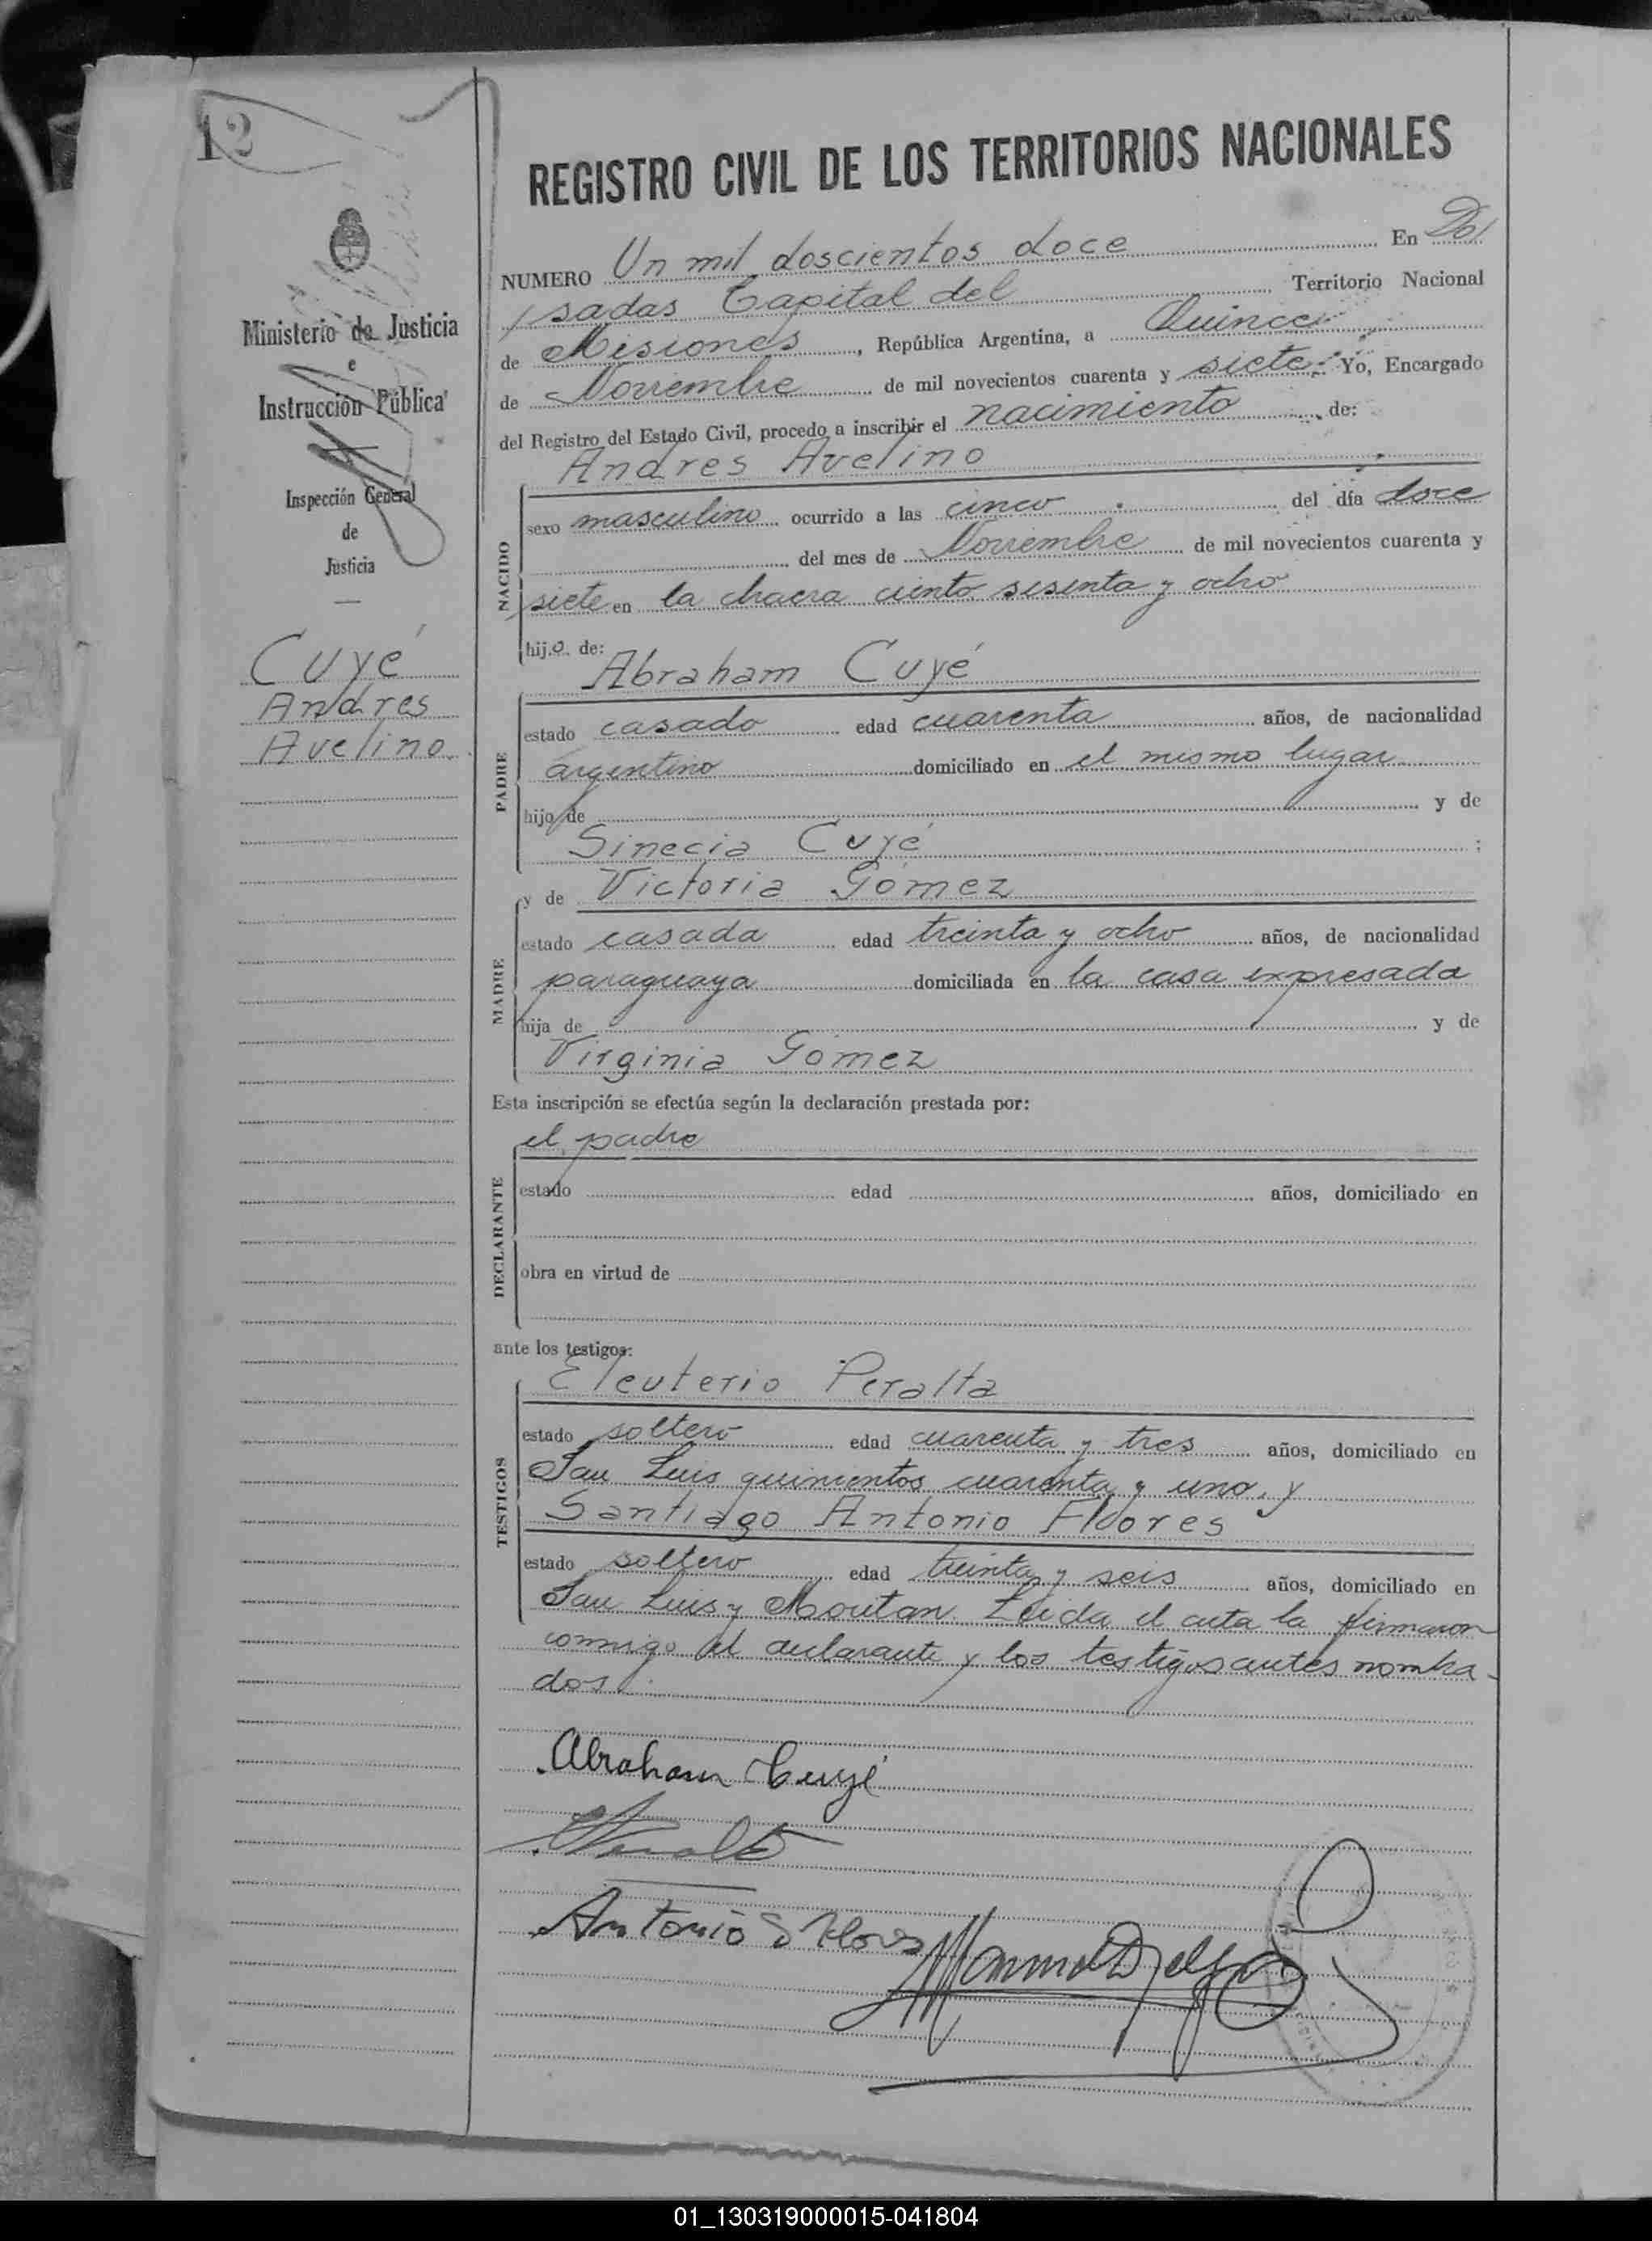 12
REGISTRO CIVIL DE LOS TERRITORIOS NACIONALES
Ministerio de Justicia
e
Instrucción Pública
Inspección General
de
Justicia
Cuyé
Andres
Avelino
NUMERO Un mil doscientos doce En Po
sadas Capital del Territorio Nacional
de Misiones, República Argentina, a Quince
de Noviembre de mil novecientos cuarenta y siete: Yo, Encargado
del Registro del Estado Civil, procedo a inscribir el nacimiento de:
Andres Avelino
NACIDO
sexo masculino ocurrido a las cinco del día doce
del mes de Noviembre de mil novecientos cuarenta y
siete en la chacra ciento sesenta y ocho
hijo de:
Abraham Cuyé
PADRE
estado casado edad cuarenta años, de nacionalidad
argentino domiciliado en el mismo lugar
hijo de y de
Sinecia Cuyé ;
y de Victoria Gómez
MADRE
estado casada edad treinta y ocho años, de nacionalidad
paraguaya domiciliada en la casa expresada
hija de y de
Virginia Gómez
Esta inscripción se efectúa según la declaración prestada por:
el padre
DECLARANTE
estado edad años, domiciliado en
obra en virtud de
ante los testigos:
Eleuterio Peralta
TESTIGOS
estado soltero edad cuarenta y tres años, domiciliado en
San Luis quinientos cuarenta y uno, y
Santiago Antonio Flores
estado soltero edad treinta y seis años, domiciliado en
San Luis y Moutan. Leida el acta la firmaron
conmigo el declarante y los testigos antes nombra-
dos.
Abraham Cuyé
Antonio S Flores
01_130319000015-041804